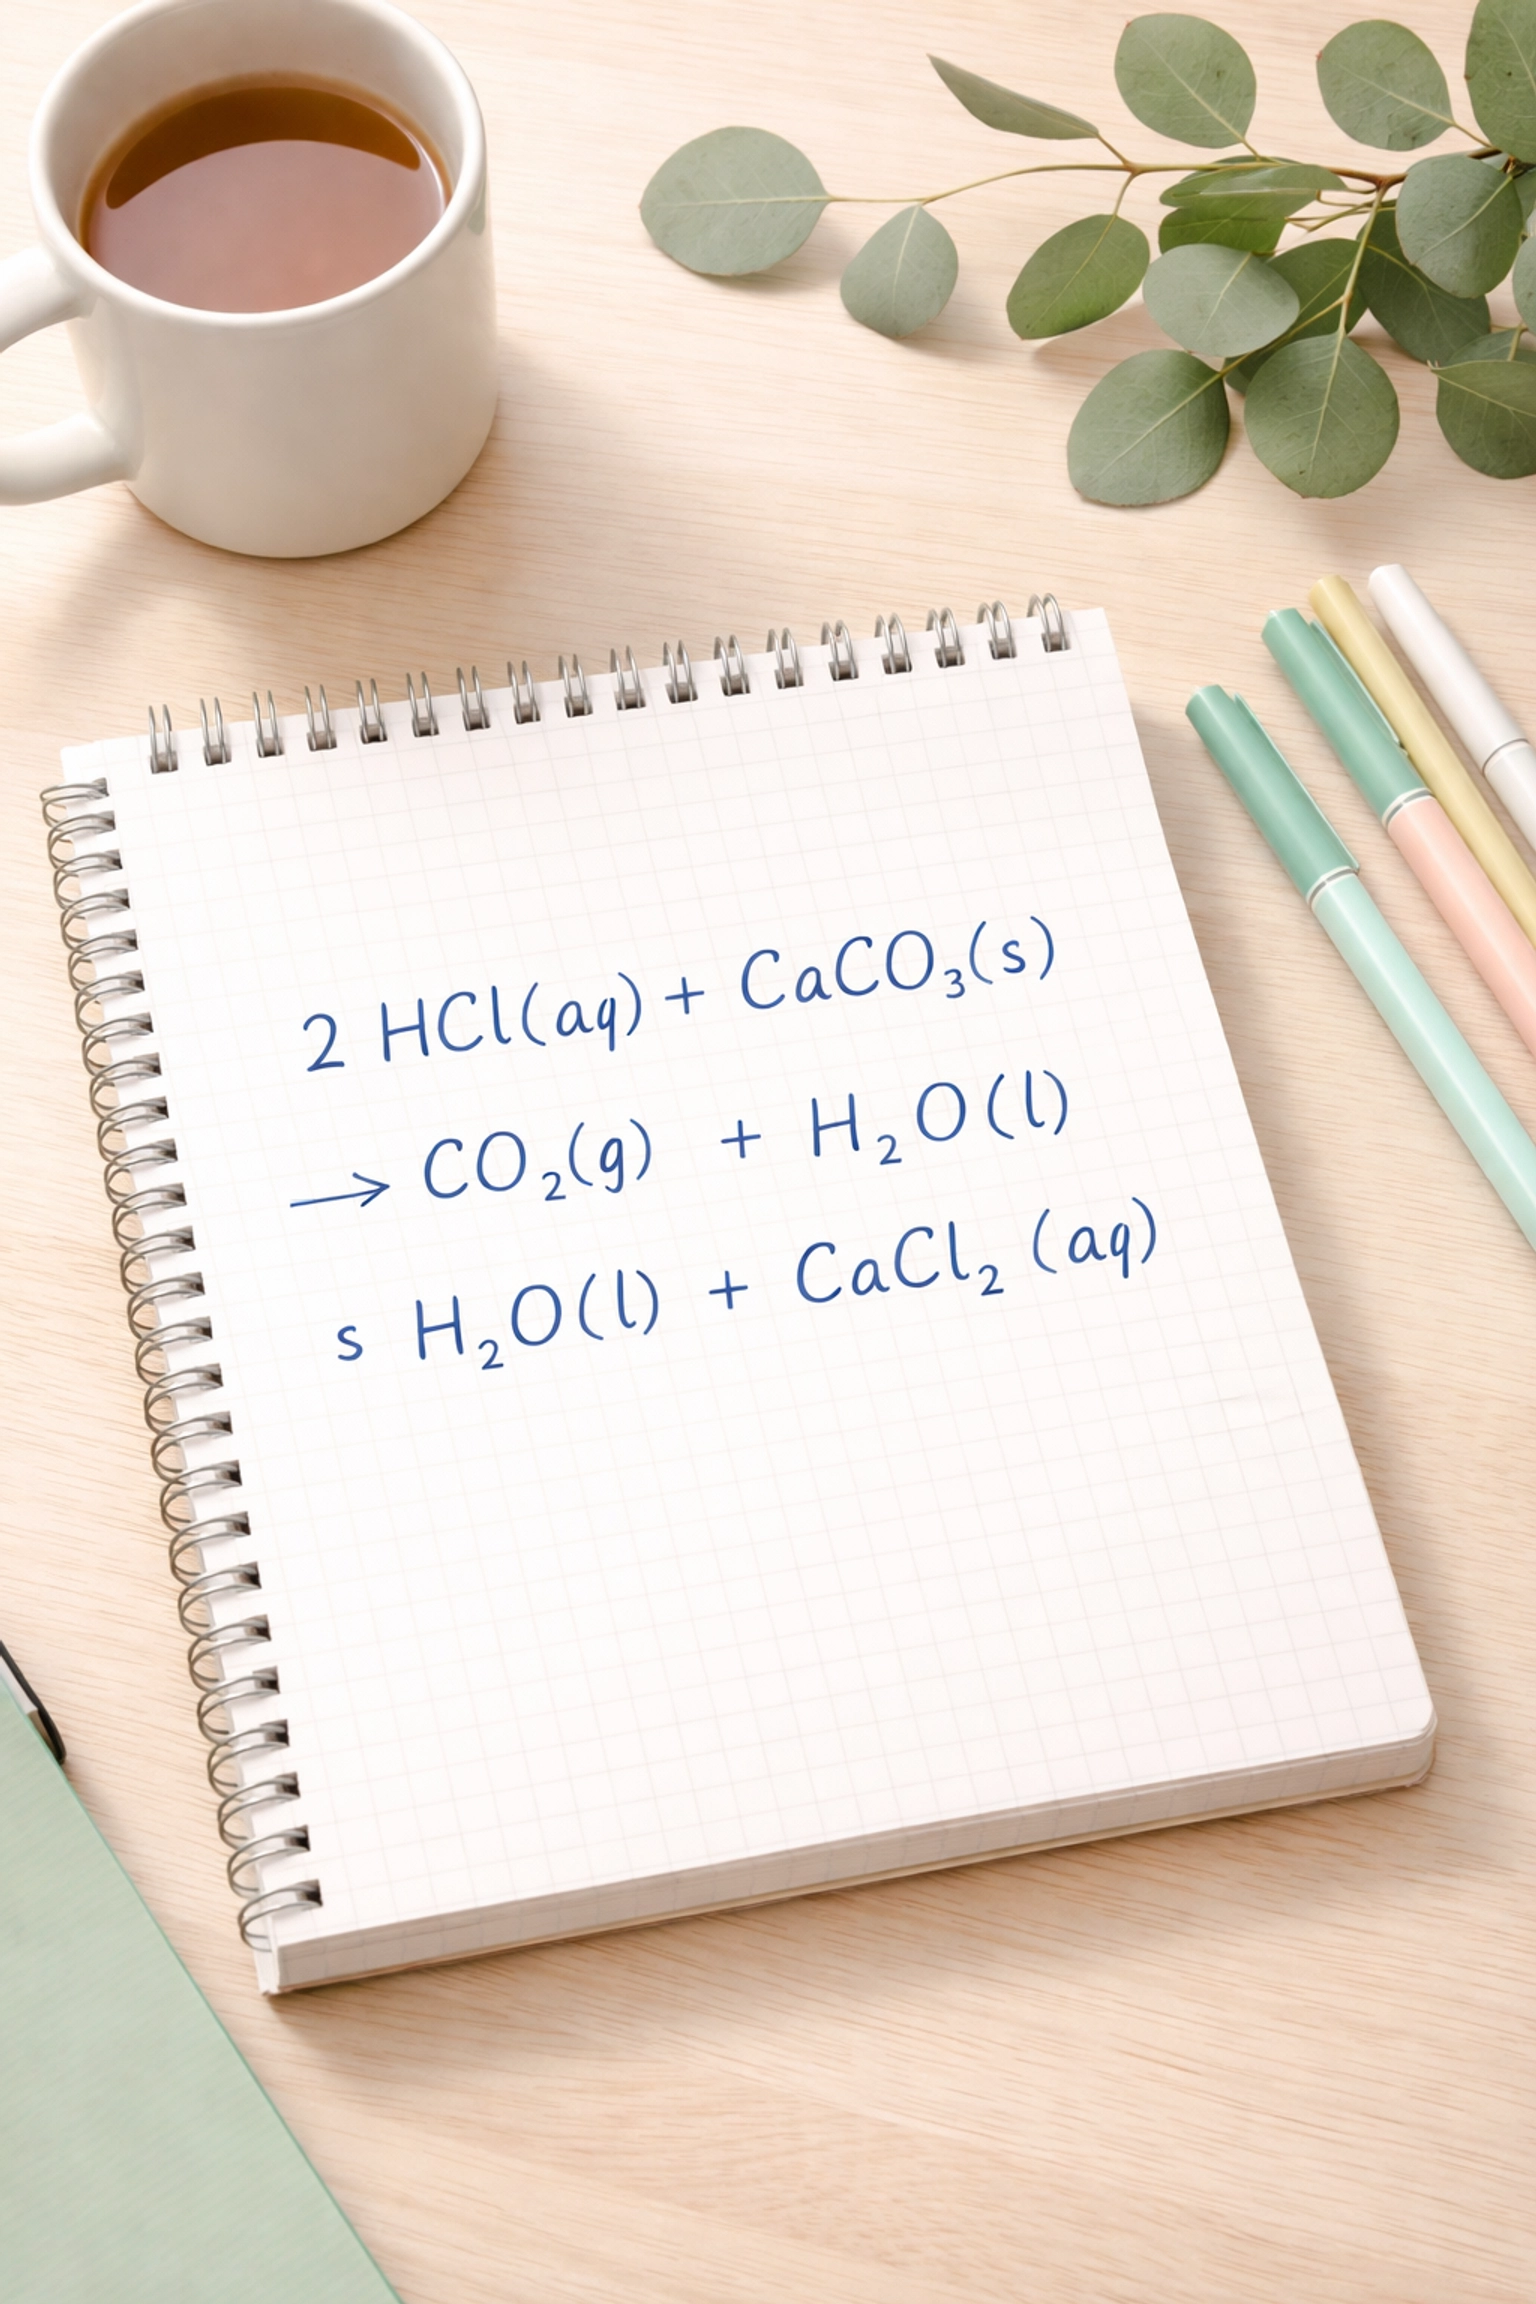 2 HCl(aq) + CaCO₃(s)
→ CO₂(g) + H₂O(l)
s H₂O(l) + CaCl₂ (aq)